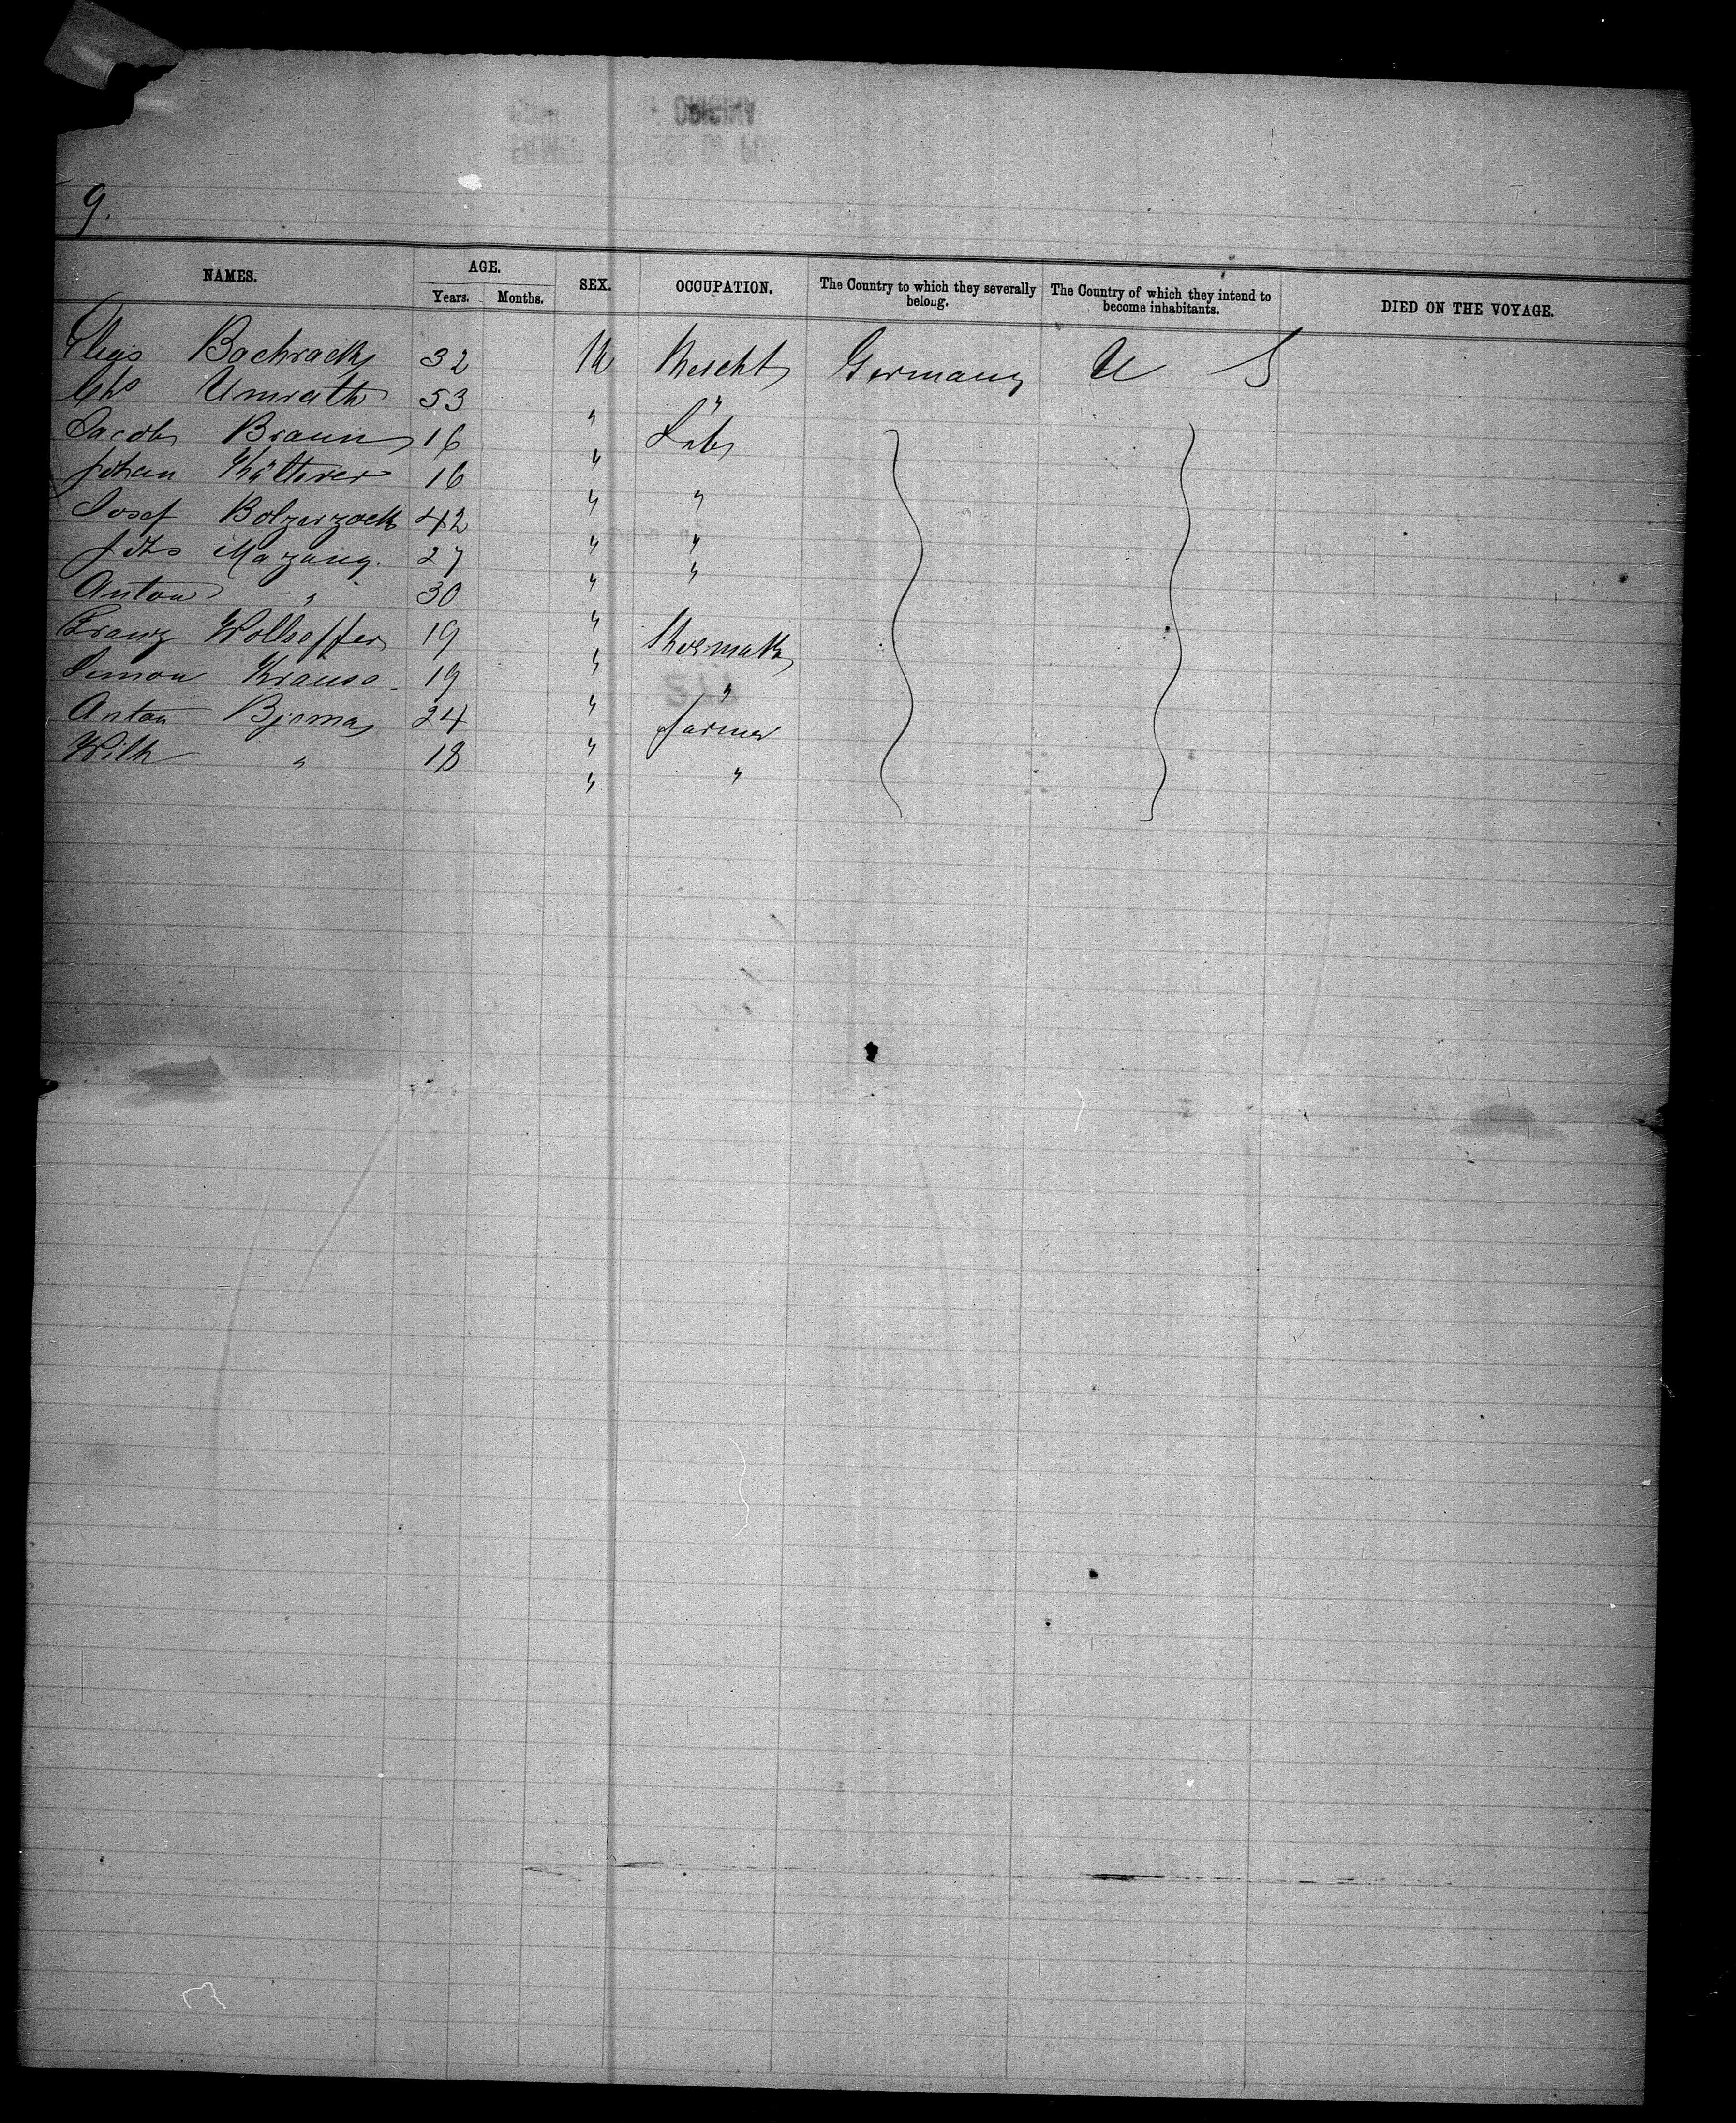 9.
NAMES. AGE. SEX. OCCUPATION. The Country to which they severally belong. The Country of which they intend to become inhabitants. DIED ON THE VOYAGE.
Years. Months.
Elias Bachrach 32 M Mercht Germany U S
Chs Umrath 53 " "
Jacob Braun 16 " Lab
Johan Kütterer 16 " "
Josef Bolzerzack 42 " "
Johs Mazang. 27 " "
Anton " 30 "
Franz Wolhoffer 19 " Shoemak
Simon Krauso 19 " "
Anton Bjoma 24 " farmer
Wilh " 18 " "